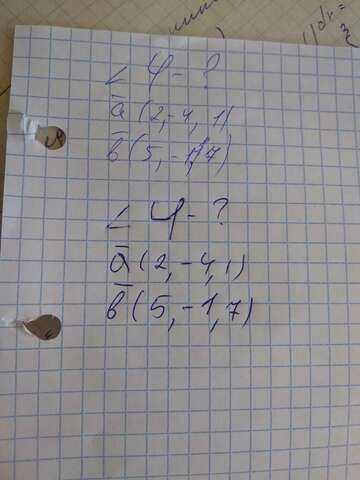 ∠ φ - ?
ā (2, -4, 1)
b̄ (5, -1, 7)
∠ φ - ?
ā (2, -4, 1)
b̄ (5, -1, 7)